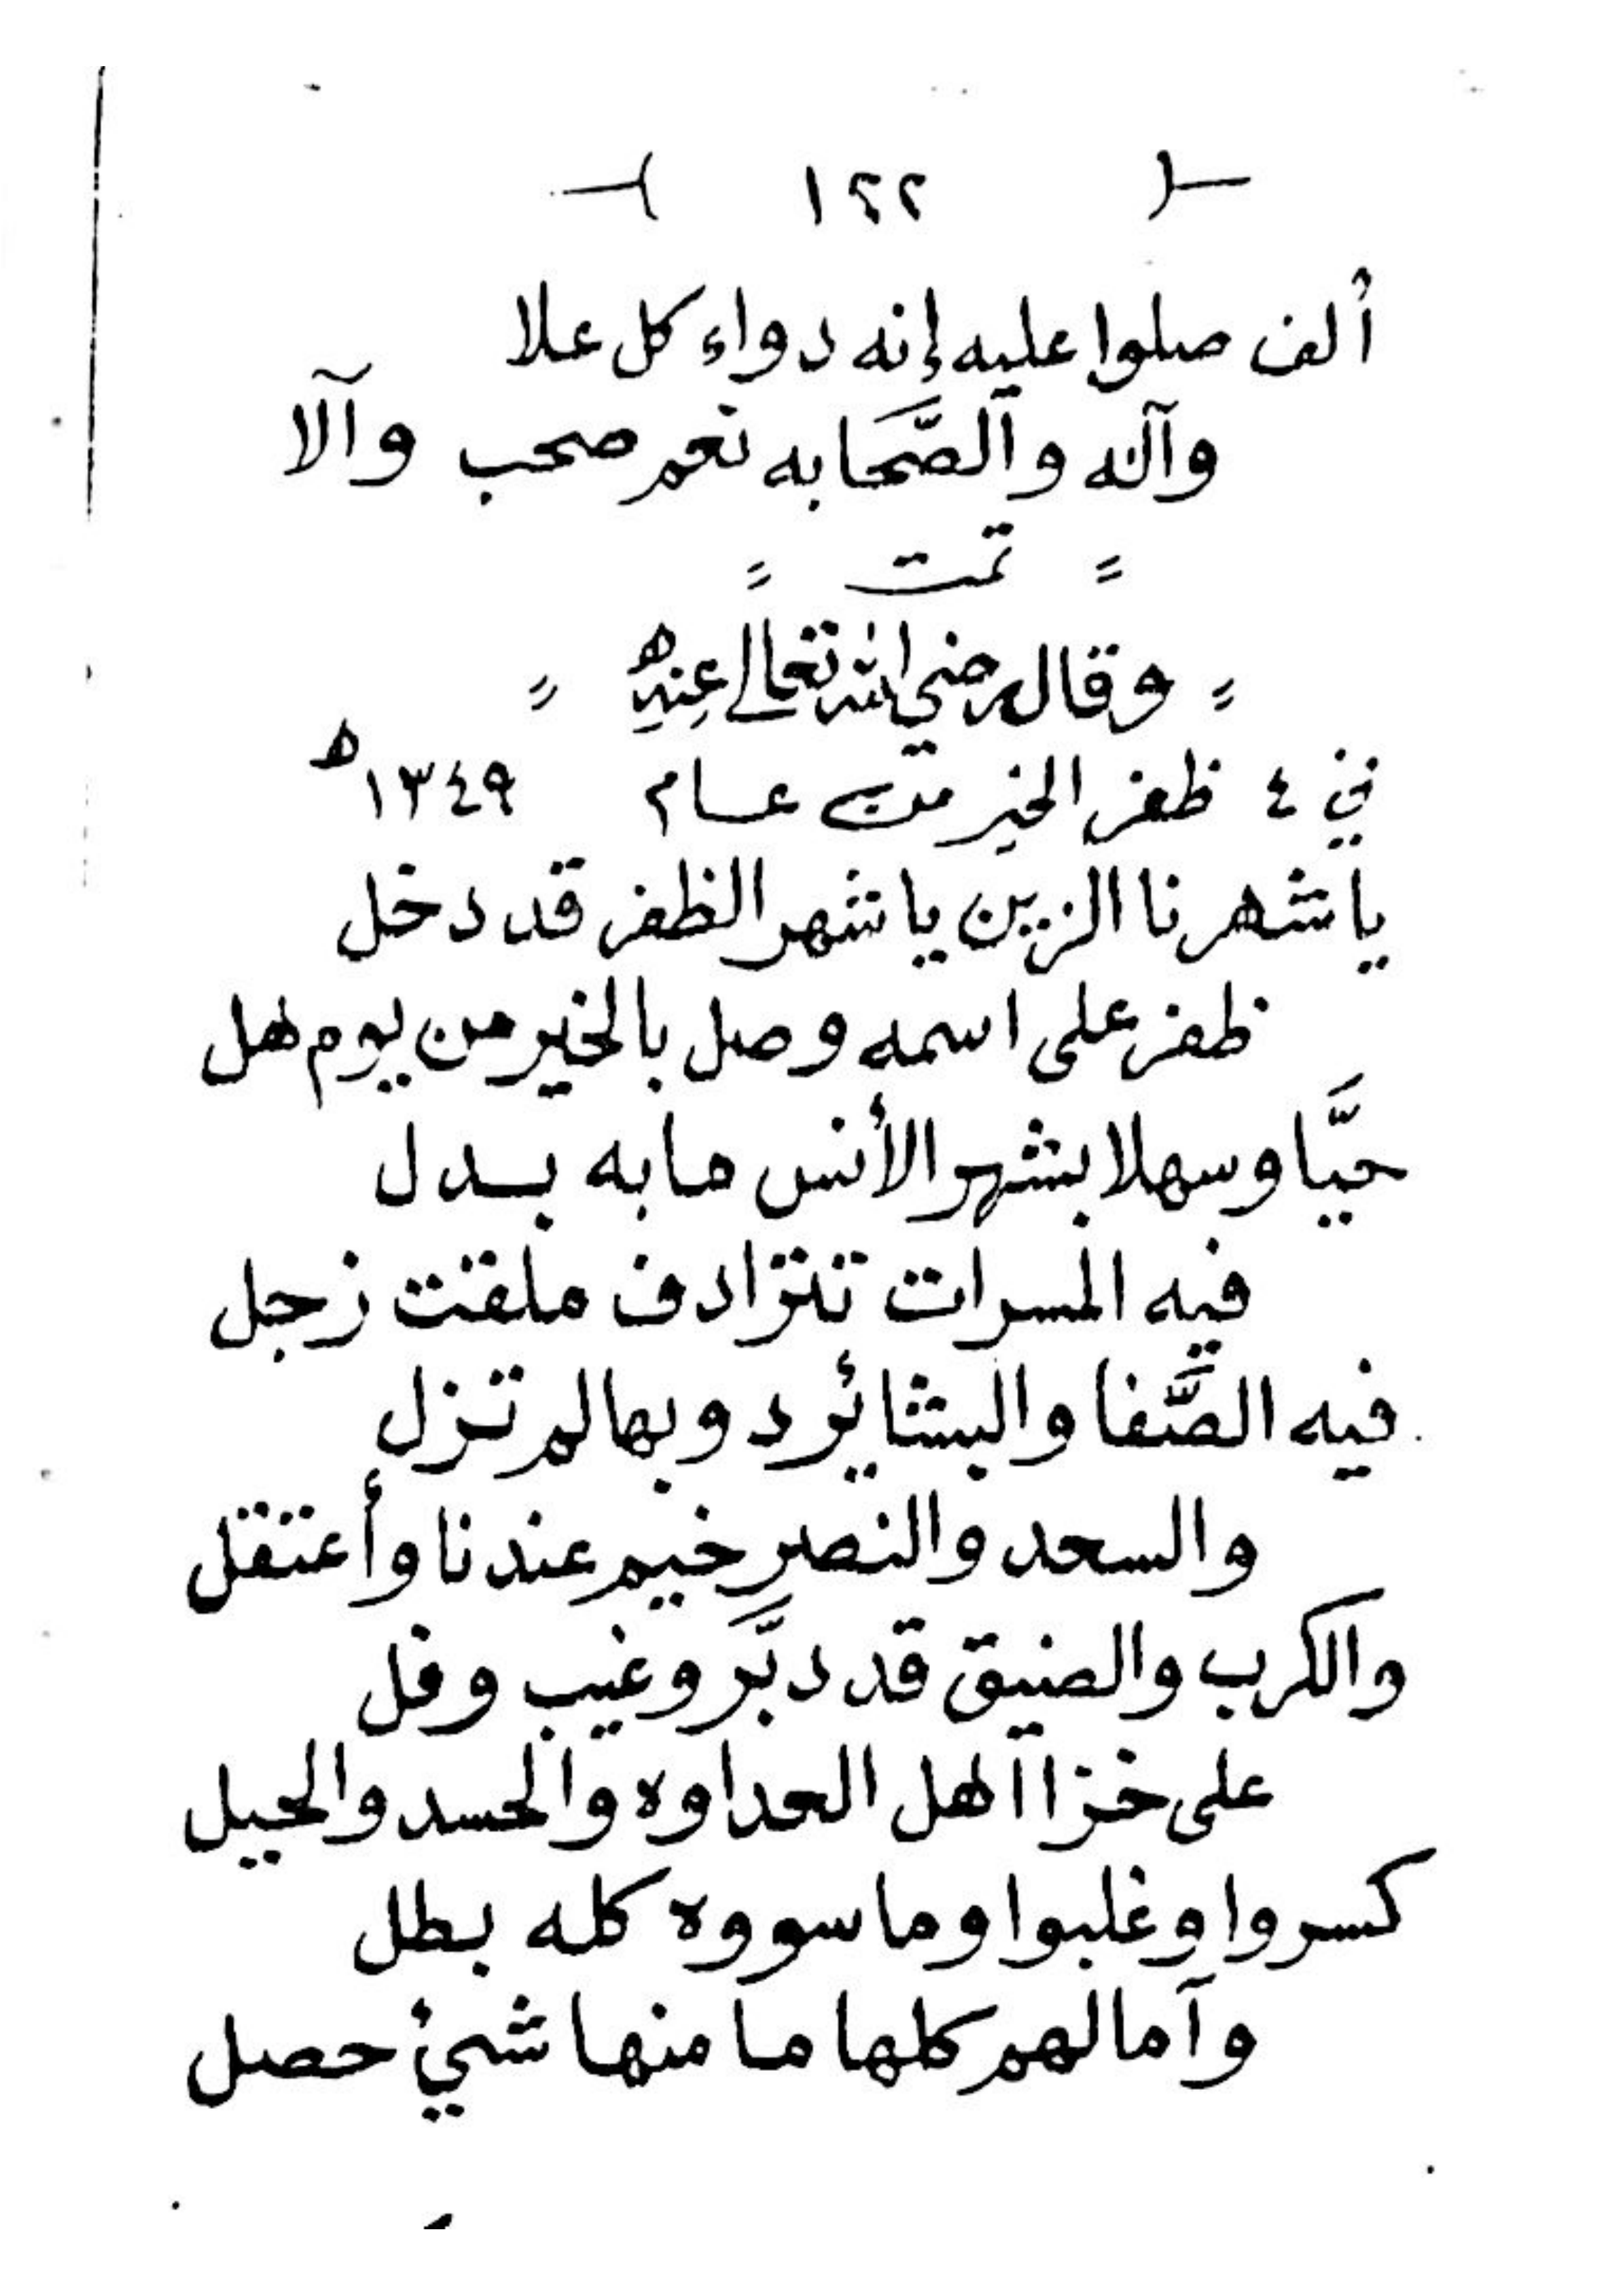 ١٢٢
ألف صلوا عليه إنه دواء كل علا
وآله والصَّحَابه نعم صحب وآلا
تمت
وقال رضي الله تعالى عنه
في ٤ ظفر الخير من عام ١٣٤٩ه
يا شهرنا الزين يا شهر الظفر قد دخل
ظفر على اسمه وصل بالخير من يوم هل
حيَّا وسهلا بشهر الأنس ما به بدل
فيه المسرات تترادف ملقت زجل
فيه الصَّفا والبشائر دوبها لم تزل
والسعد والنصر خيم عندنا وأعتقل
والكرب والضيق قد دبَّر وغيب وفل
على خزا اهل العداوه والحسد والحيل
كسروا وغلبوا وما سووه كله بطل
وآمالهم كلها ما منها شيئ حصل